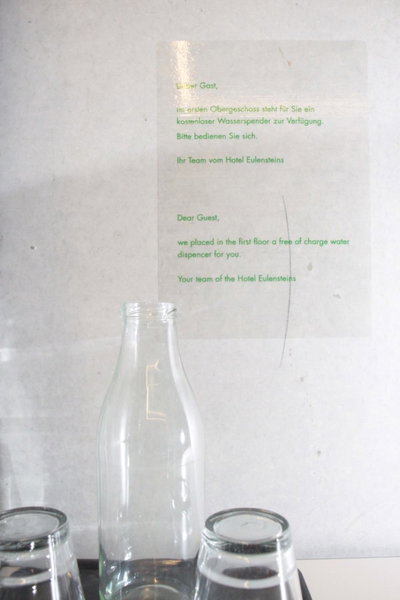 Lieber Gast,
im ersten Obergeschoss steht für Sie ein
kostenloser Wasserspender zur Verfügung.
Bitte bedienen Sie sich.
Ihr Team vom Hotel Eulensteins
Dear Guest,
we placed in the first floor a free of charge water
dispencer for you.
Your team of the Hotel Eulensteins